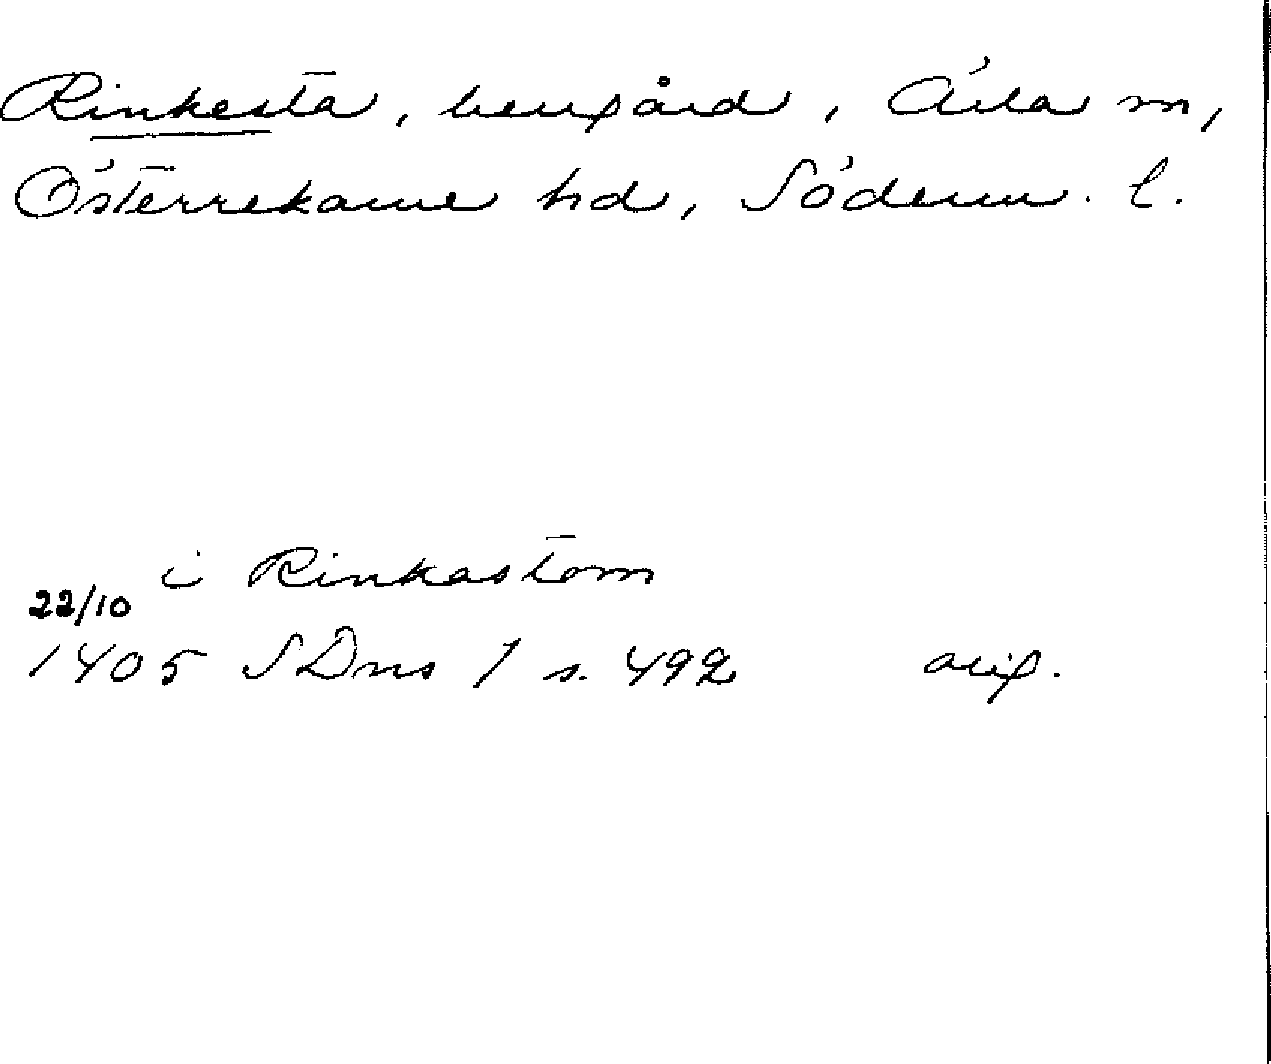 Rinkesta, herrgård, Ärla sn,
Österrekarne hd, Söderm. l.
i Rinkastom
22/10
1405 SDns 1 s. 492 orig.